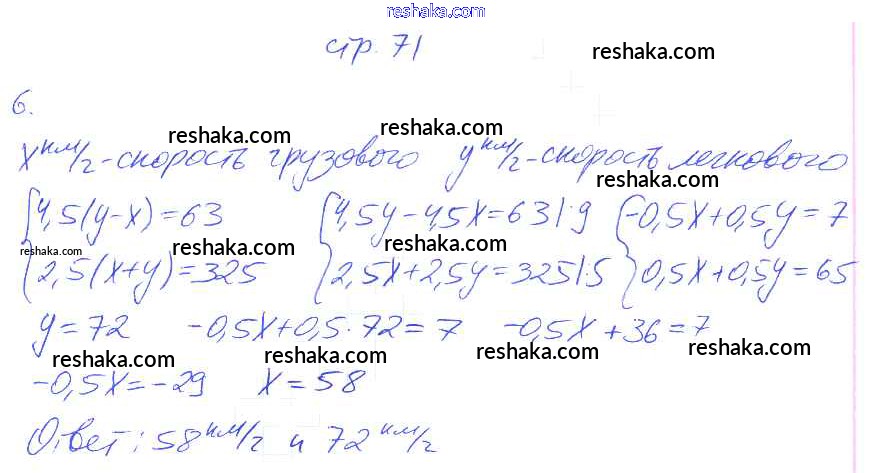 reshaka.com reshaka.com
стр. 71
reshaka.com
6.
reshaka.com reshaka.com
x км/г - скорость грузового y км/г - скорость легкового
reshaka.com
{4,5(y-x)=63 {4,5y-4,5x=63|:9 {-0,5x+0,5y=7
reshaka.com reshaka.com reshaka.com
{2,5(x+y)=325 {2,5x+2,5y=325|:5 {0,5x+0,5y=65
y=72 -0,5x+0,5·72=7 -0,5x+36=7
reshaka.com reshaka.com reshaka.com
-0,5x=-29 x=58
Ответ: 58 км/г и 72 км/г